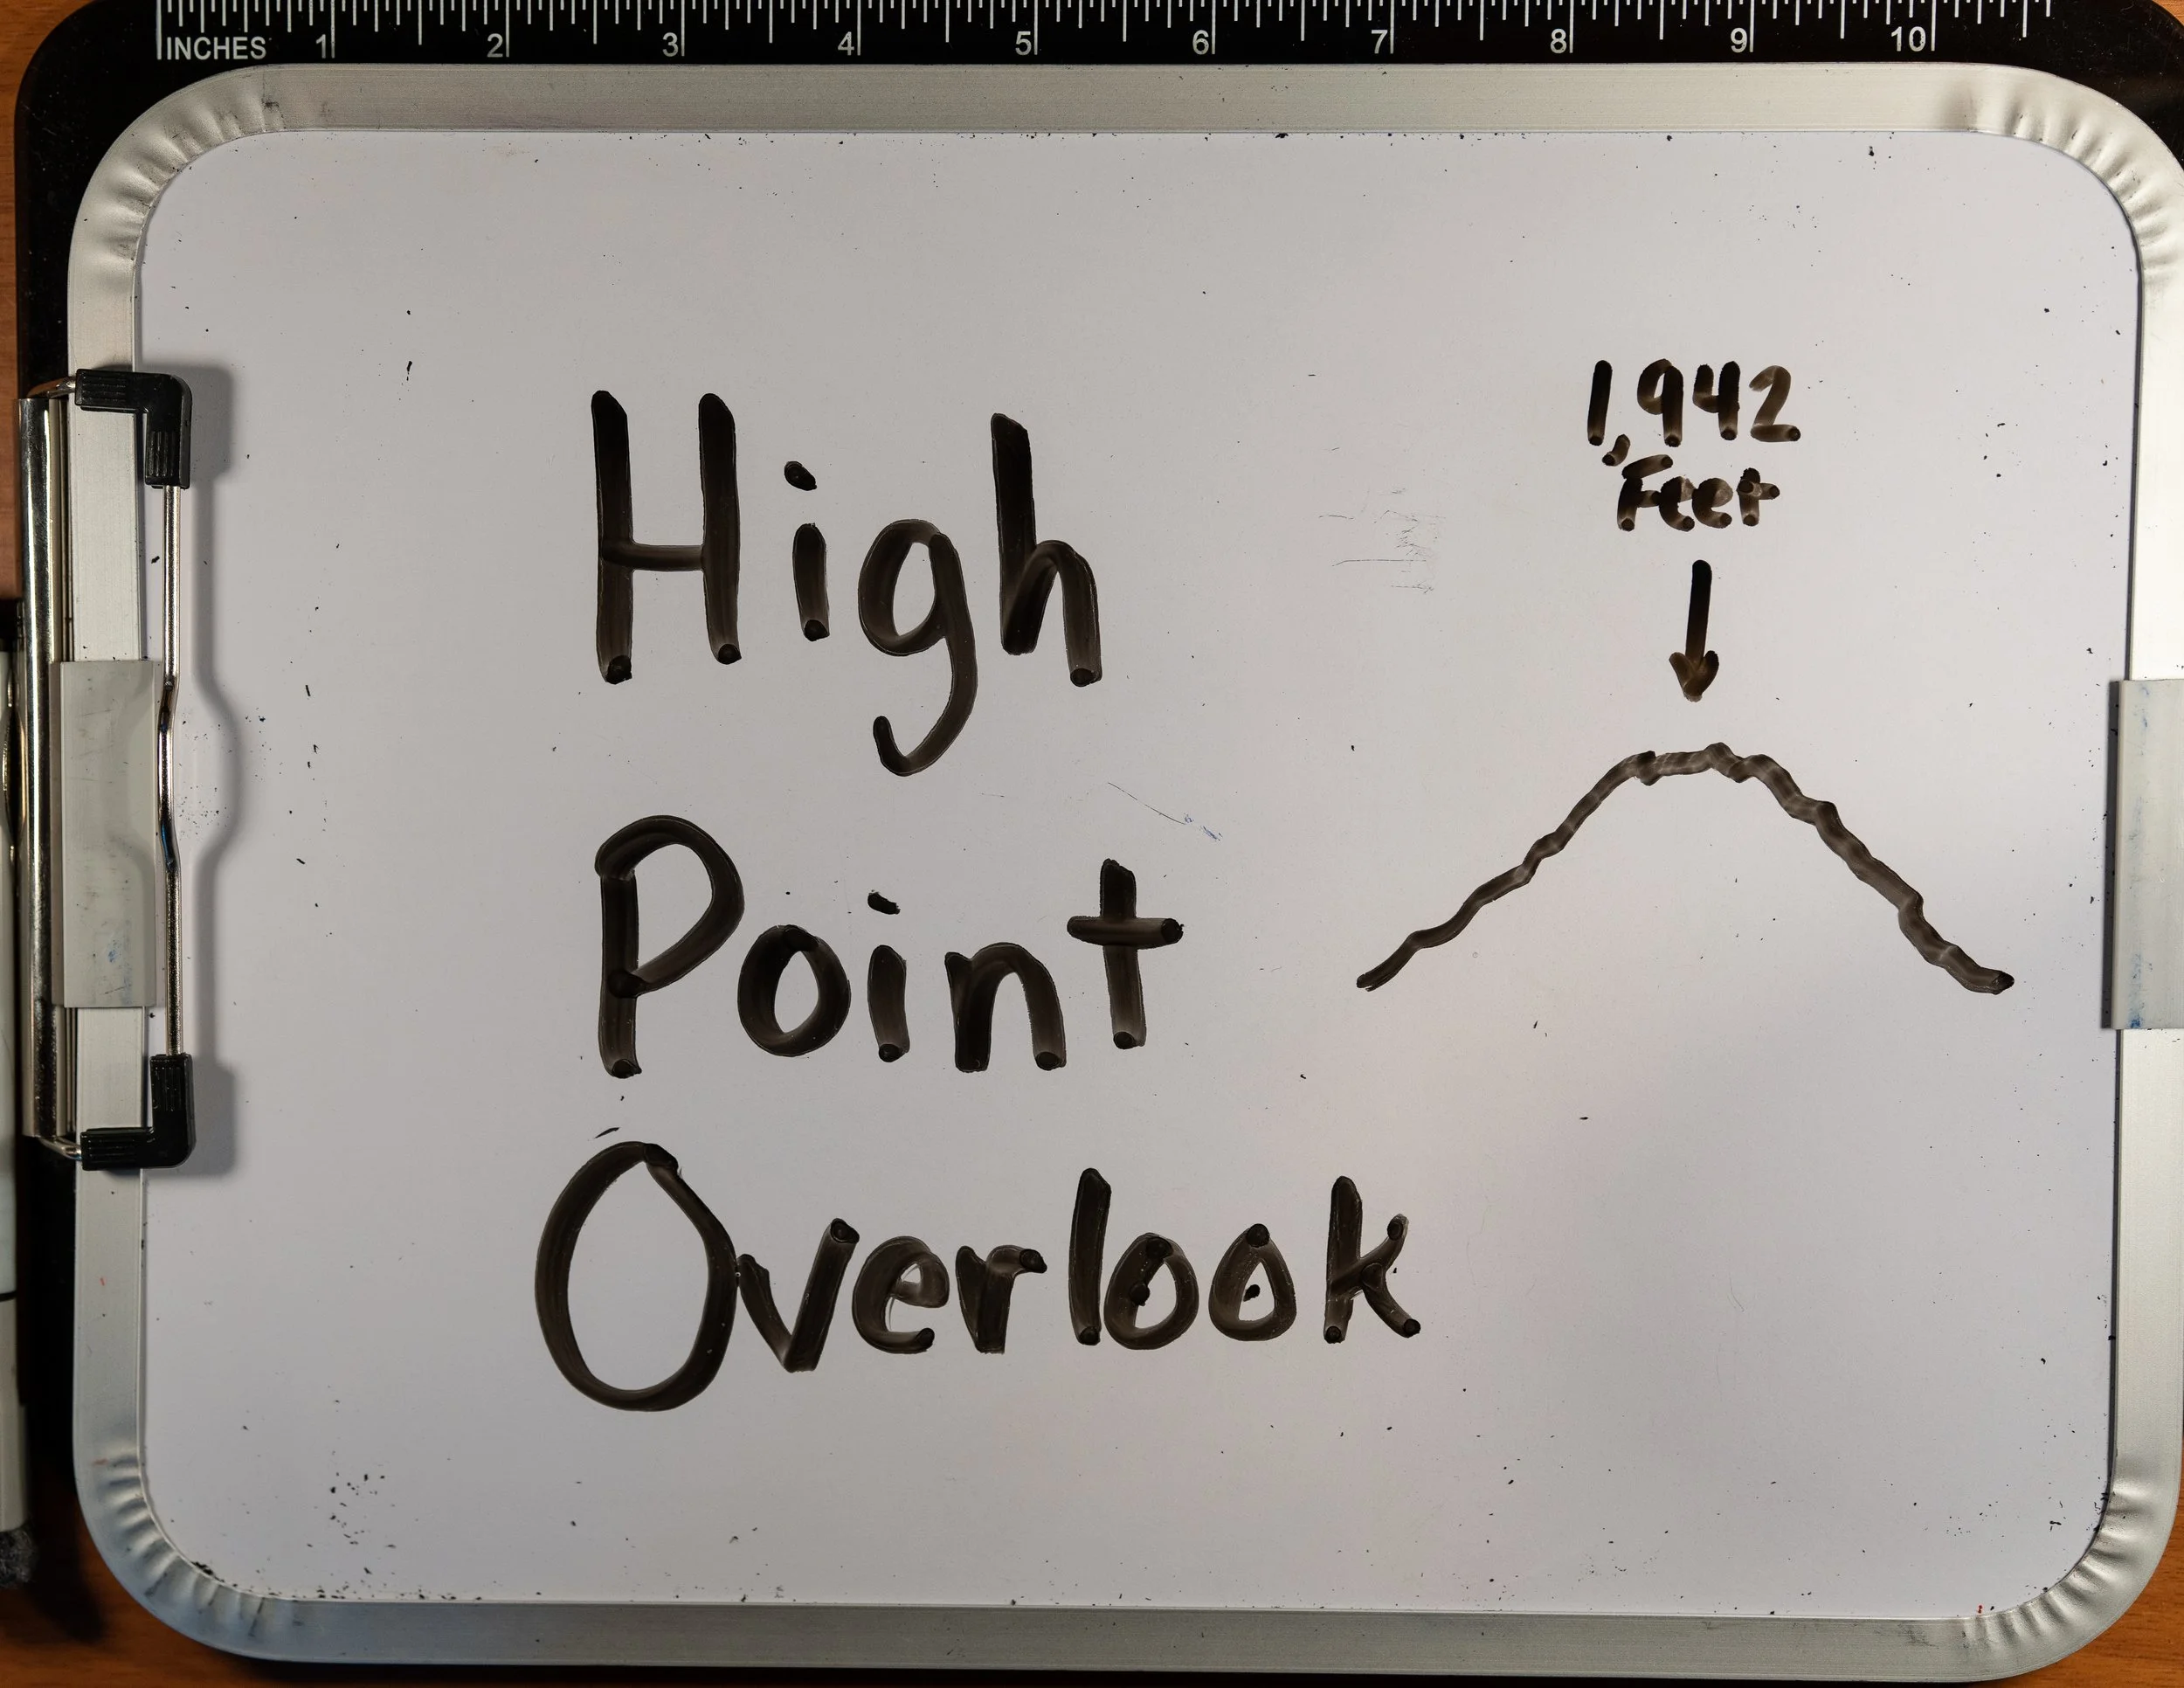 INCHES 1 2 3 4 5 6 7 8 9 10
High
Point
Overlook
1,942
Feet